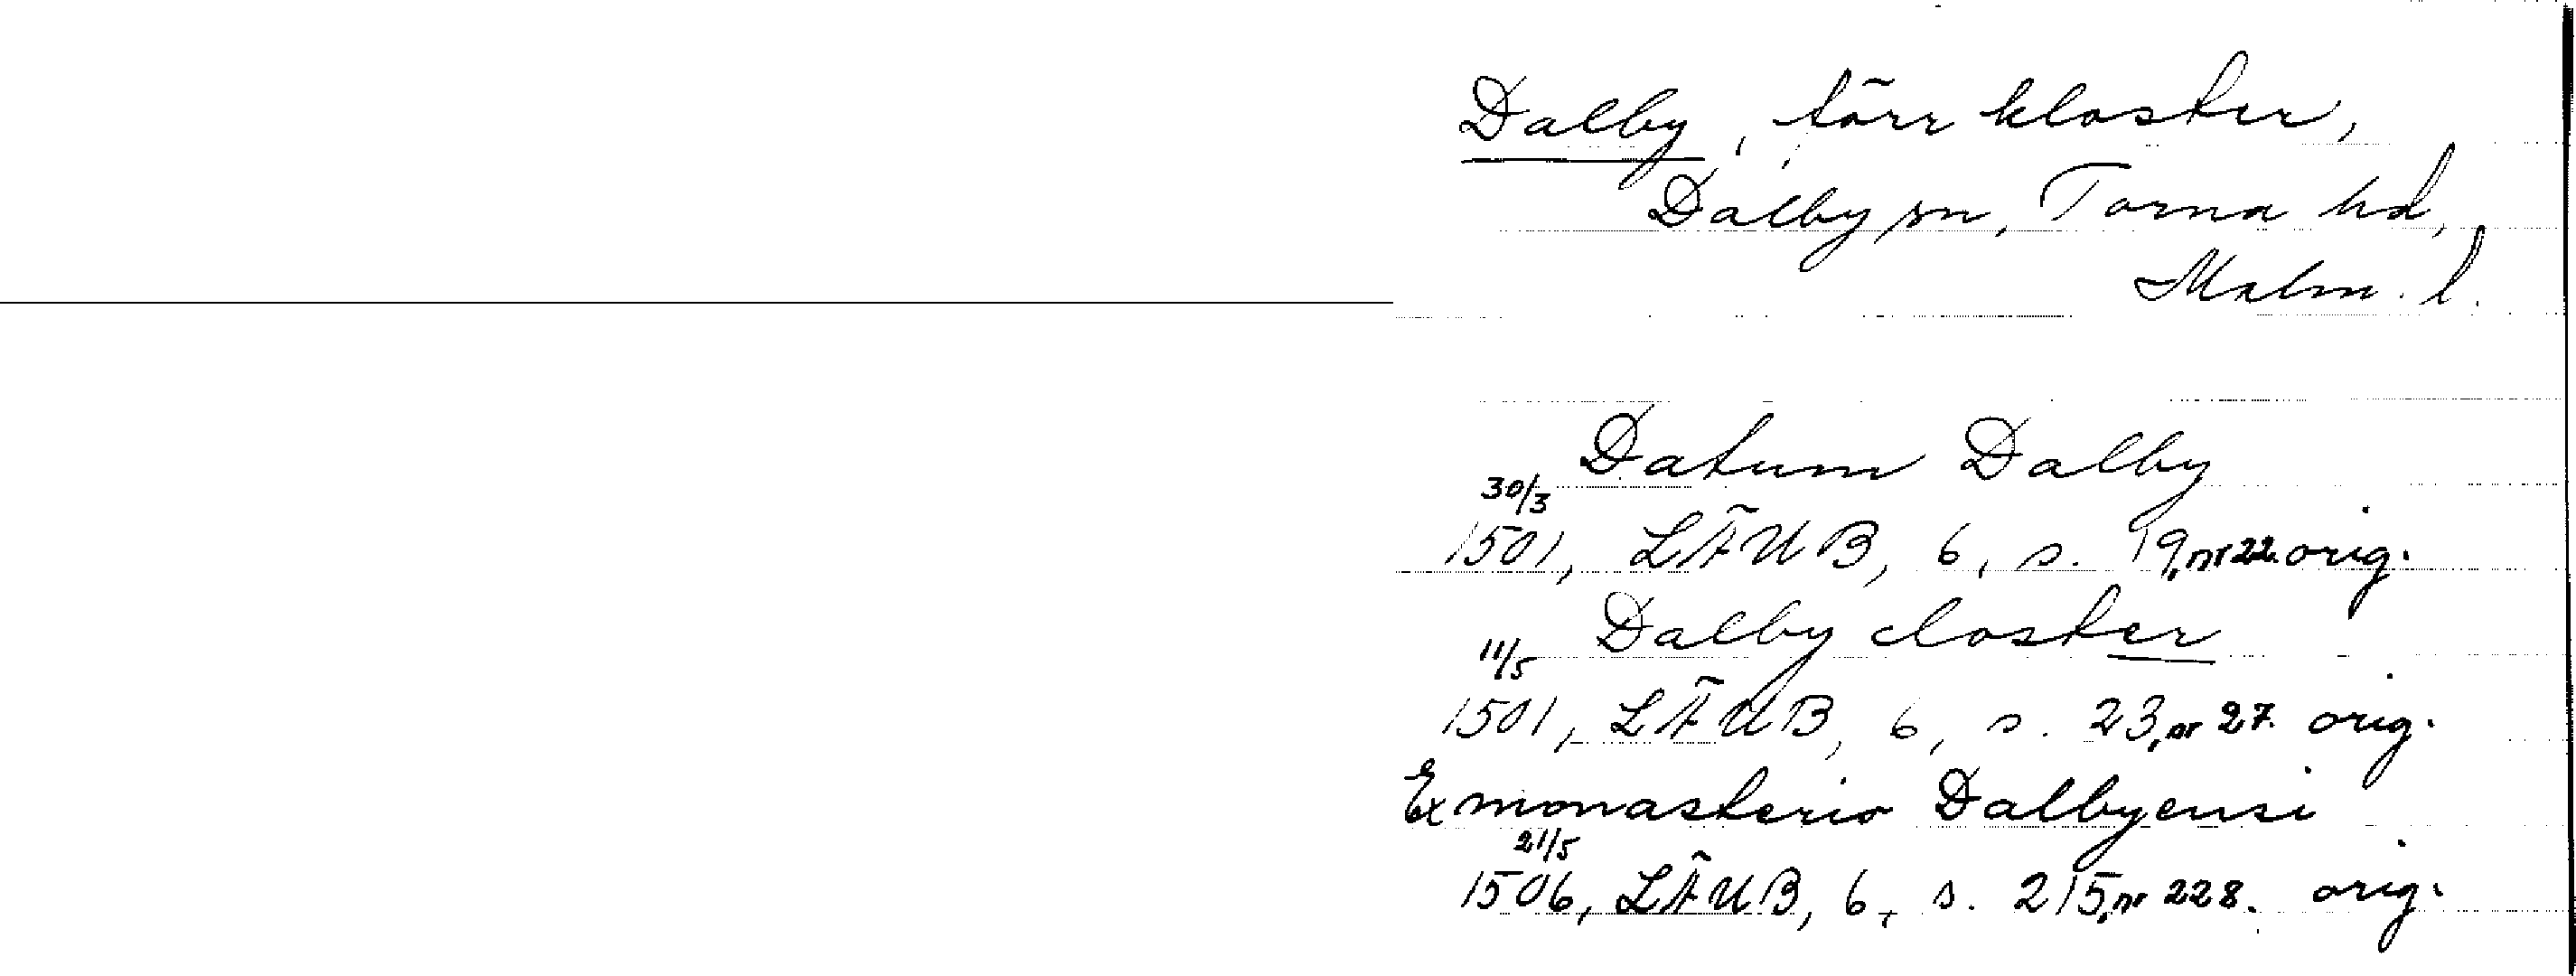 Dalby, förr kloster,
Dalby sn, Torna hd,
Malm. l.
Datum Dalby
30/3
1501, LÄUB, 6, s. 19, nr 22. orig.
Dalby closter
11/5
1501, LÄUB, 6, s. 23, nr 27. orig.
Ex monasterio Dalbyensi
21/5
1506, LÄUB, 6, s. 215, nr 228. orig.